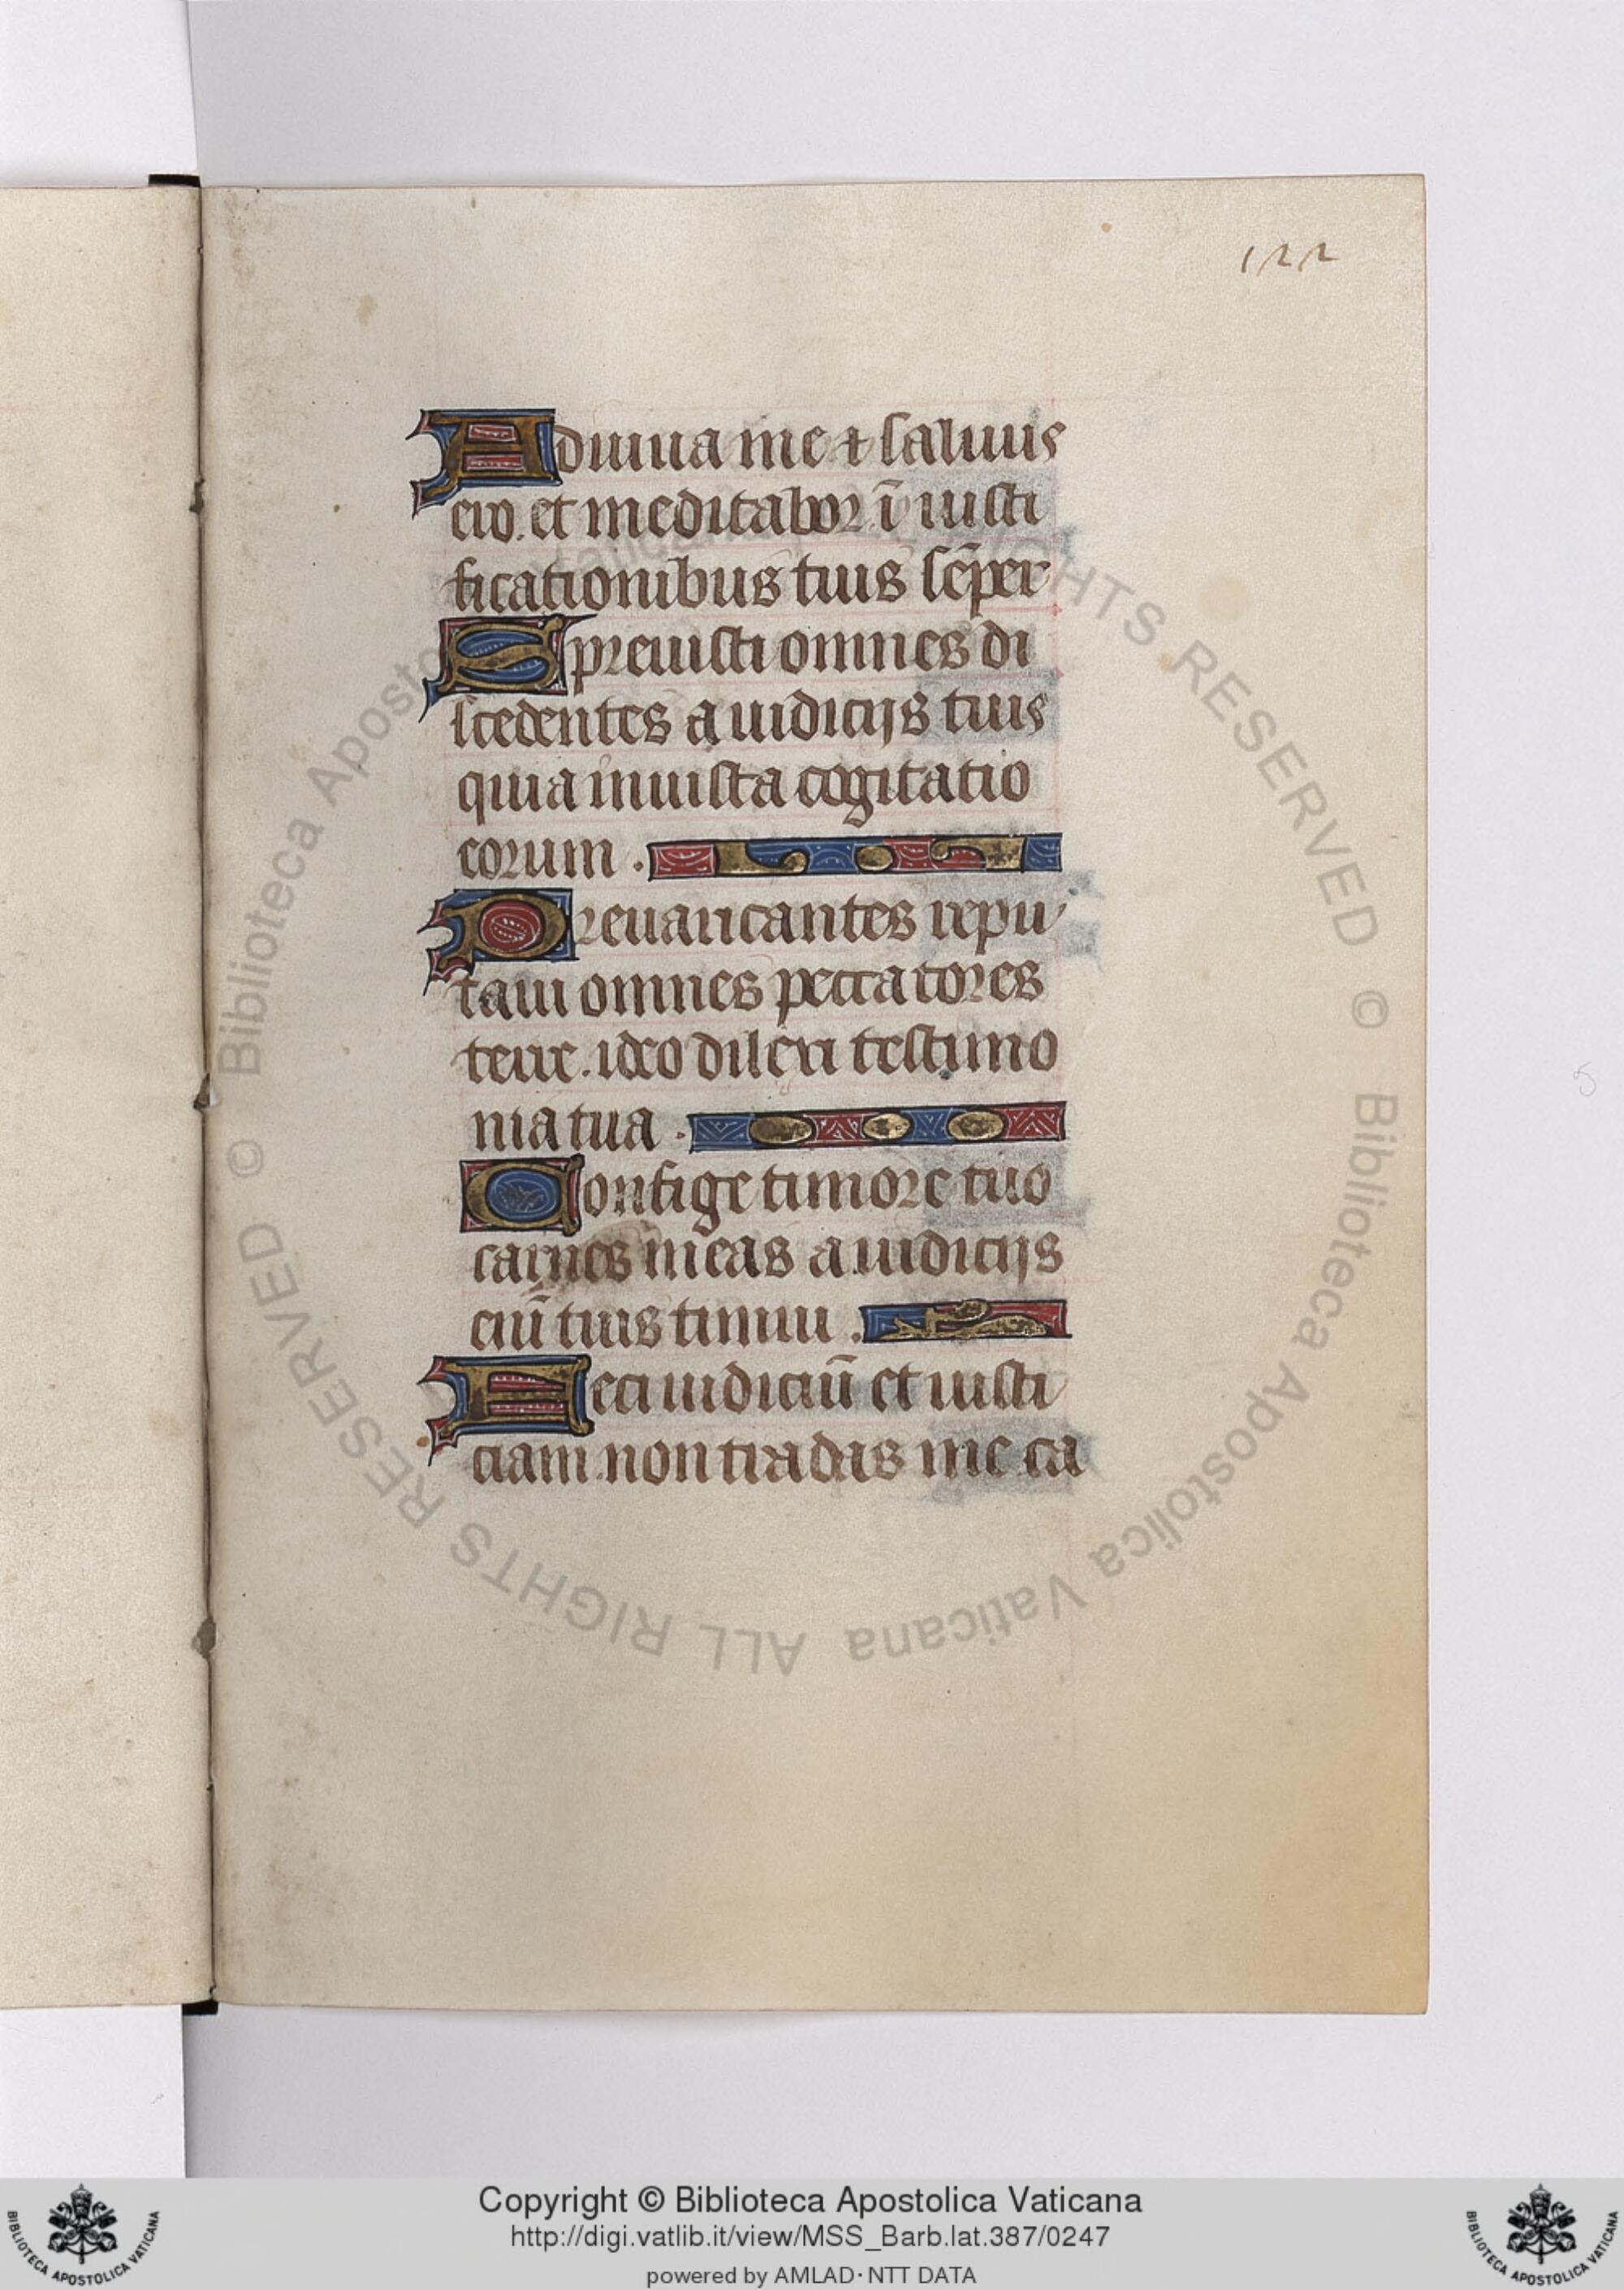 122
Adiuua me ⁊ saluus
ero. et meditabor ī iusti
ficationibus tuis sēper
Spreuisti omnes di
scedentes a iudicijs tuis
quia iniusta cogitatio
eorum .
Preuaricantes repu
taui omnes peccatores
terre. ideo dilexi testimo
nia tua .
Confige timore tuo
carnes meas a iudicijs
eni͞m tuis timui .
Feci iudiciū et iusti
ciam non tradas me ca
© Biblioteca Apostolica Vaticana ALL RIGHTS RESERVED
© Biblioteca Apostolica Vaticana ALL RIGHTS RESERVED
Copyright © Biblioteca Apostolica Vaticana
http://digi.vatlib.it/view/MSS_Barb.lat.387/0247
powered by AMLAD·NTT DATA
BIBLIOTECA APOSTOLICA VATICANA
BIBLIOTECA APOSTOLICA VATICANA